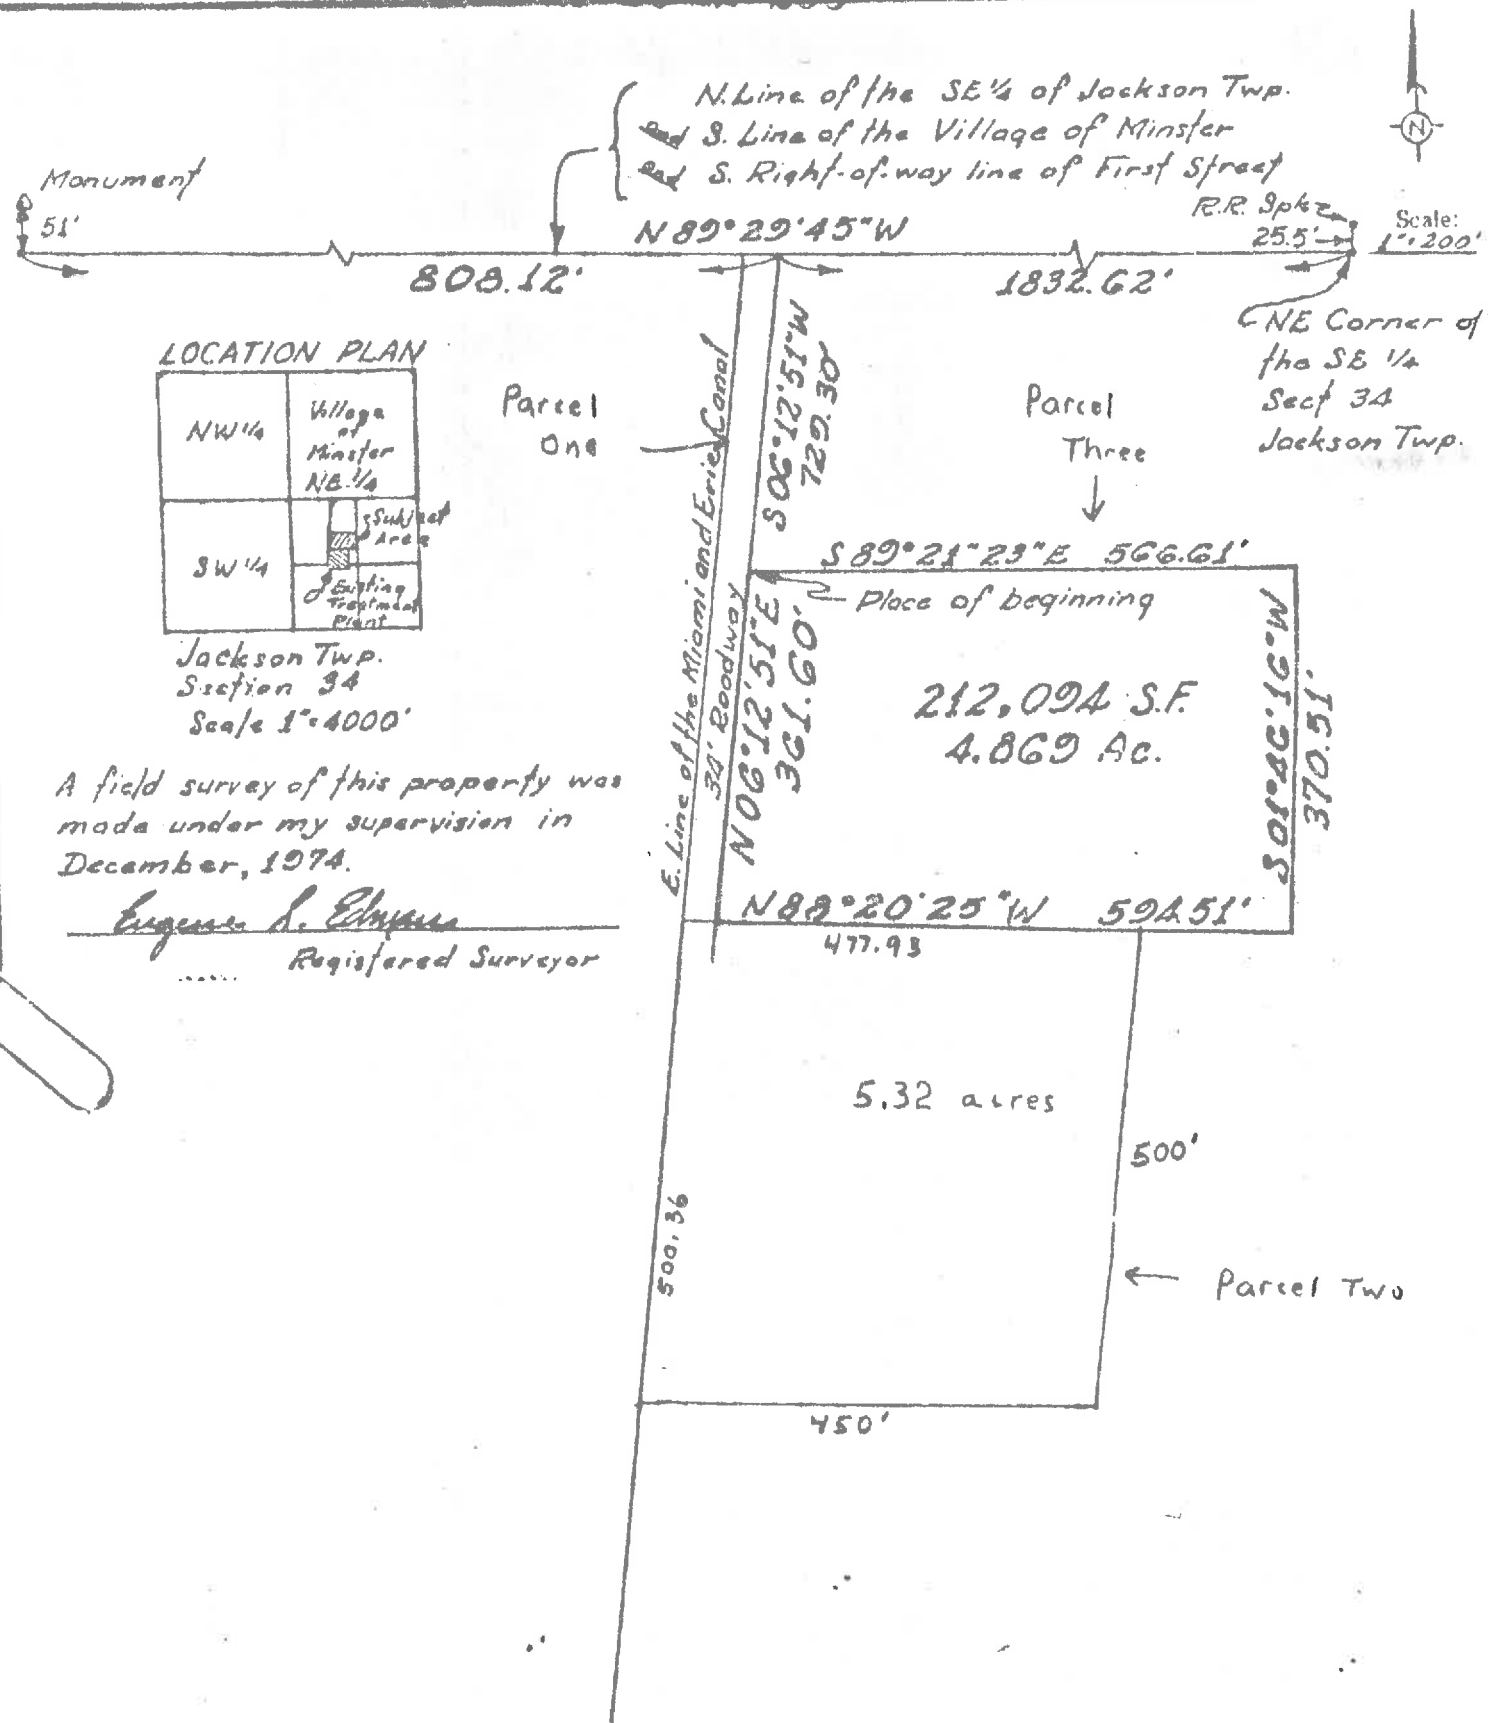 N. Line of the SE 1/4 of Jackson Twp.
and S. Line of the Village of Minster
and S. Right-of-way line of First Street
N
Monument
51'
N 89° 29' 45" W
R.R. Spke
25.5'
Scale:
1" = 200'
808.12'
1832.62'
NE Corner of
the SE 1/4
Sect 34
Jackson Twp.
LOCATION PLAN
NW 1/4
Village
of
Minster
NE 1/4
SW 1/4
Subject
Area
Existing
Treatment
Plant
Jackson Twp.
Section 34
Scale 1" = 4000'
Parcel
One
E. Line of the Miami and Erie Canal
34' Roadway
S 06° 12' 51" W
729.30'
Parcel
Three
S 89° 21" 23" E 566.61'
Place of beginning
N 06° 12' 51" E
361.60'
212,094 S.F.
4.869 Ac.
S 01° 46' 16" W
370.51'
A field survey of this property was
made under my supervision in
December, 1974.
Eugene L.
Registered Surveyor
N 88° 20' 25" W 594.51'
477.93
5.32 acres
500'
500.36
Parcel Two
450'